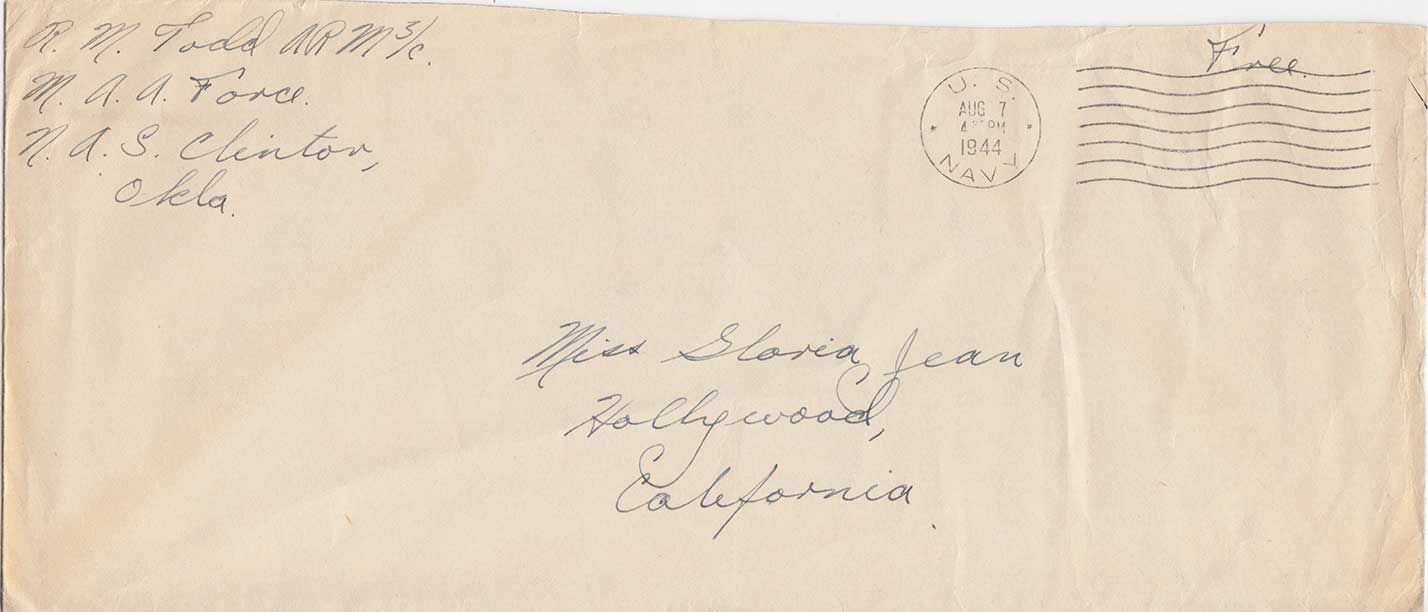 R. M. Todd ARM 3/c.
M. A. A. Force.
N. A. S. Clinton,
Okla.
Free.
U. S.
AUG 7
4 PM
1944
NAVY
Miss Gloria Jean
Hollywood,
California